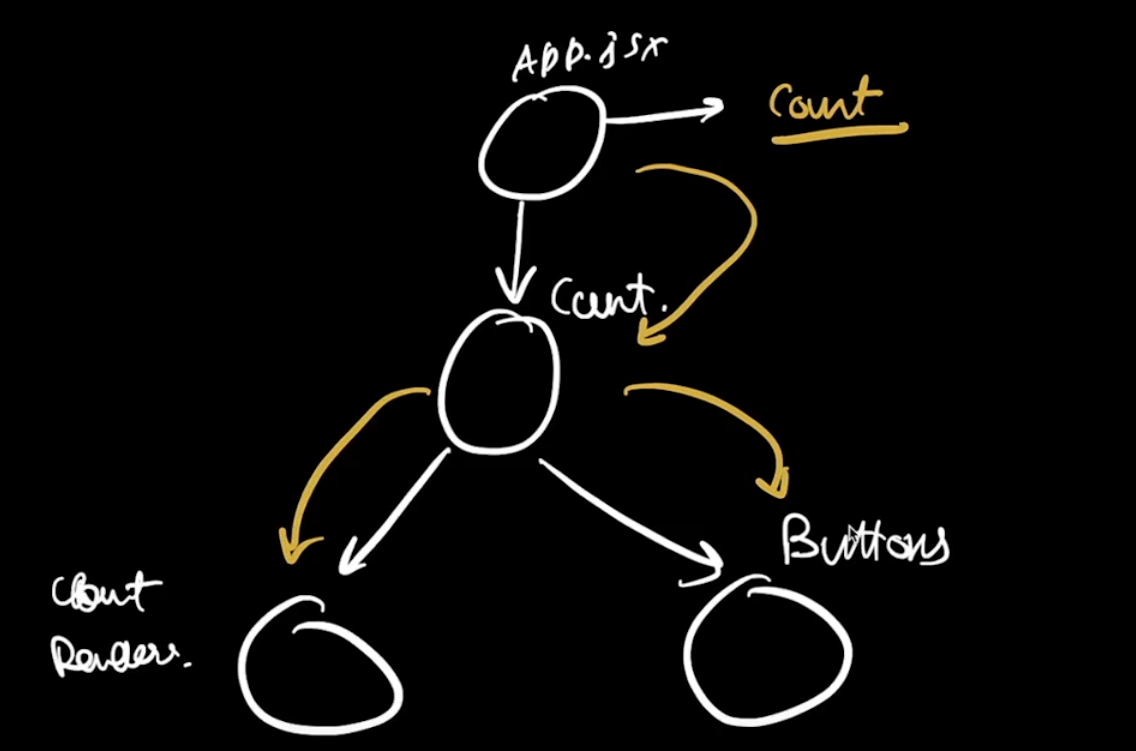 App.jsx
Count
Count.
Buttons
Count
Render.